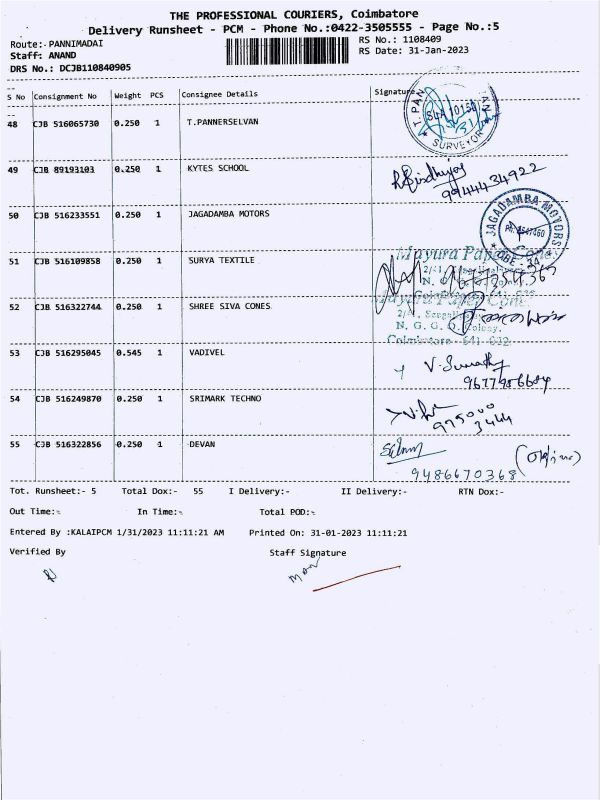 THE PROFESSIONAL COURIERS, Coimbatore
Delivery Runsheet - PCM - Phone No.:0422-3505555 - Page No.:5
Route:- PANNIMADAI
RS No.: 1108409
Staff: ANAND
RS Date: 31-Jan-2023
DRS No.: DCJB110840905
S No Consignment No Weight PCS Consignee Details Signature
48 CJB 516065730 0.250 1 T.PANNERSELVAN
SURVEYOR
49 CJB 89193103 0.250 1 KYTES SCHOOL
9944434922
50 CJB 516233551 0.250 1 JAGADAMBA MOTORS
JAGADAMBA MOTORS
51 CJB 516109858 0.250 1 SURYA TEXTILE
Mayura Paper Cone
52 CJB 516322744 0.250 1 SHREE SIVA CONES
Mayura Paper Cone
N. G. G. O. Colony,
Coimbatore - 641 022
53 CJB 516295045 0.545 1 VADIVEL
V. Sumathy
54 CJB 516249870 0.250 1 SRIMARK TECHNO
975000
3444
55 CJB 516322856 0.250 1 DEVAN
9486670368
Tot. Runsheet:- 5 Total Dox:- 55 I Delivery:- II Delivery:- RTN Dox:-
Out Time:- In Time:- Total POD:-
Entered By :KALAIPCM 1/31/2023 11:11:21 AM Printed On: 31-01-2023 11:11:21
Verified By Staff Signature